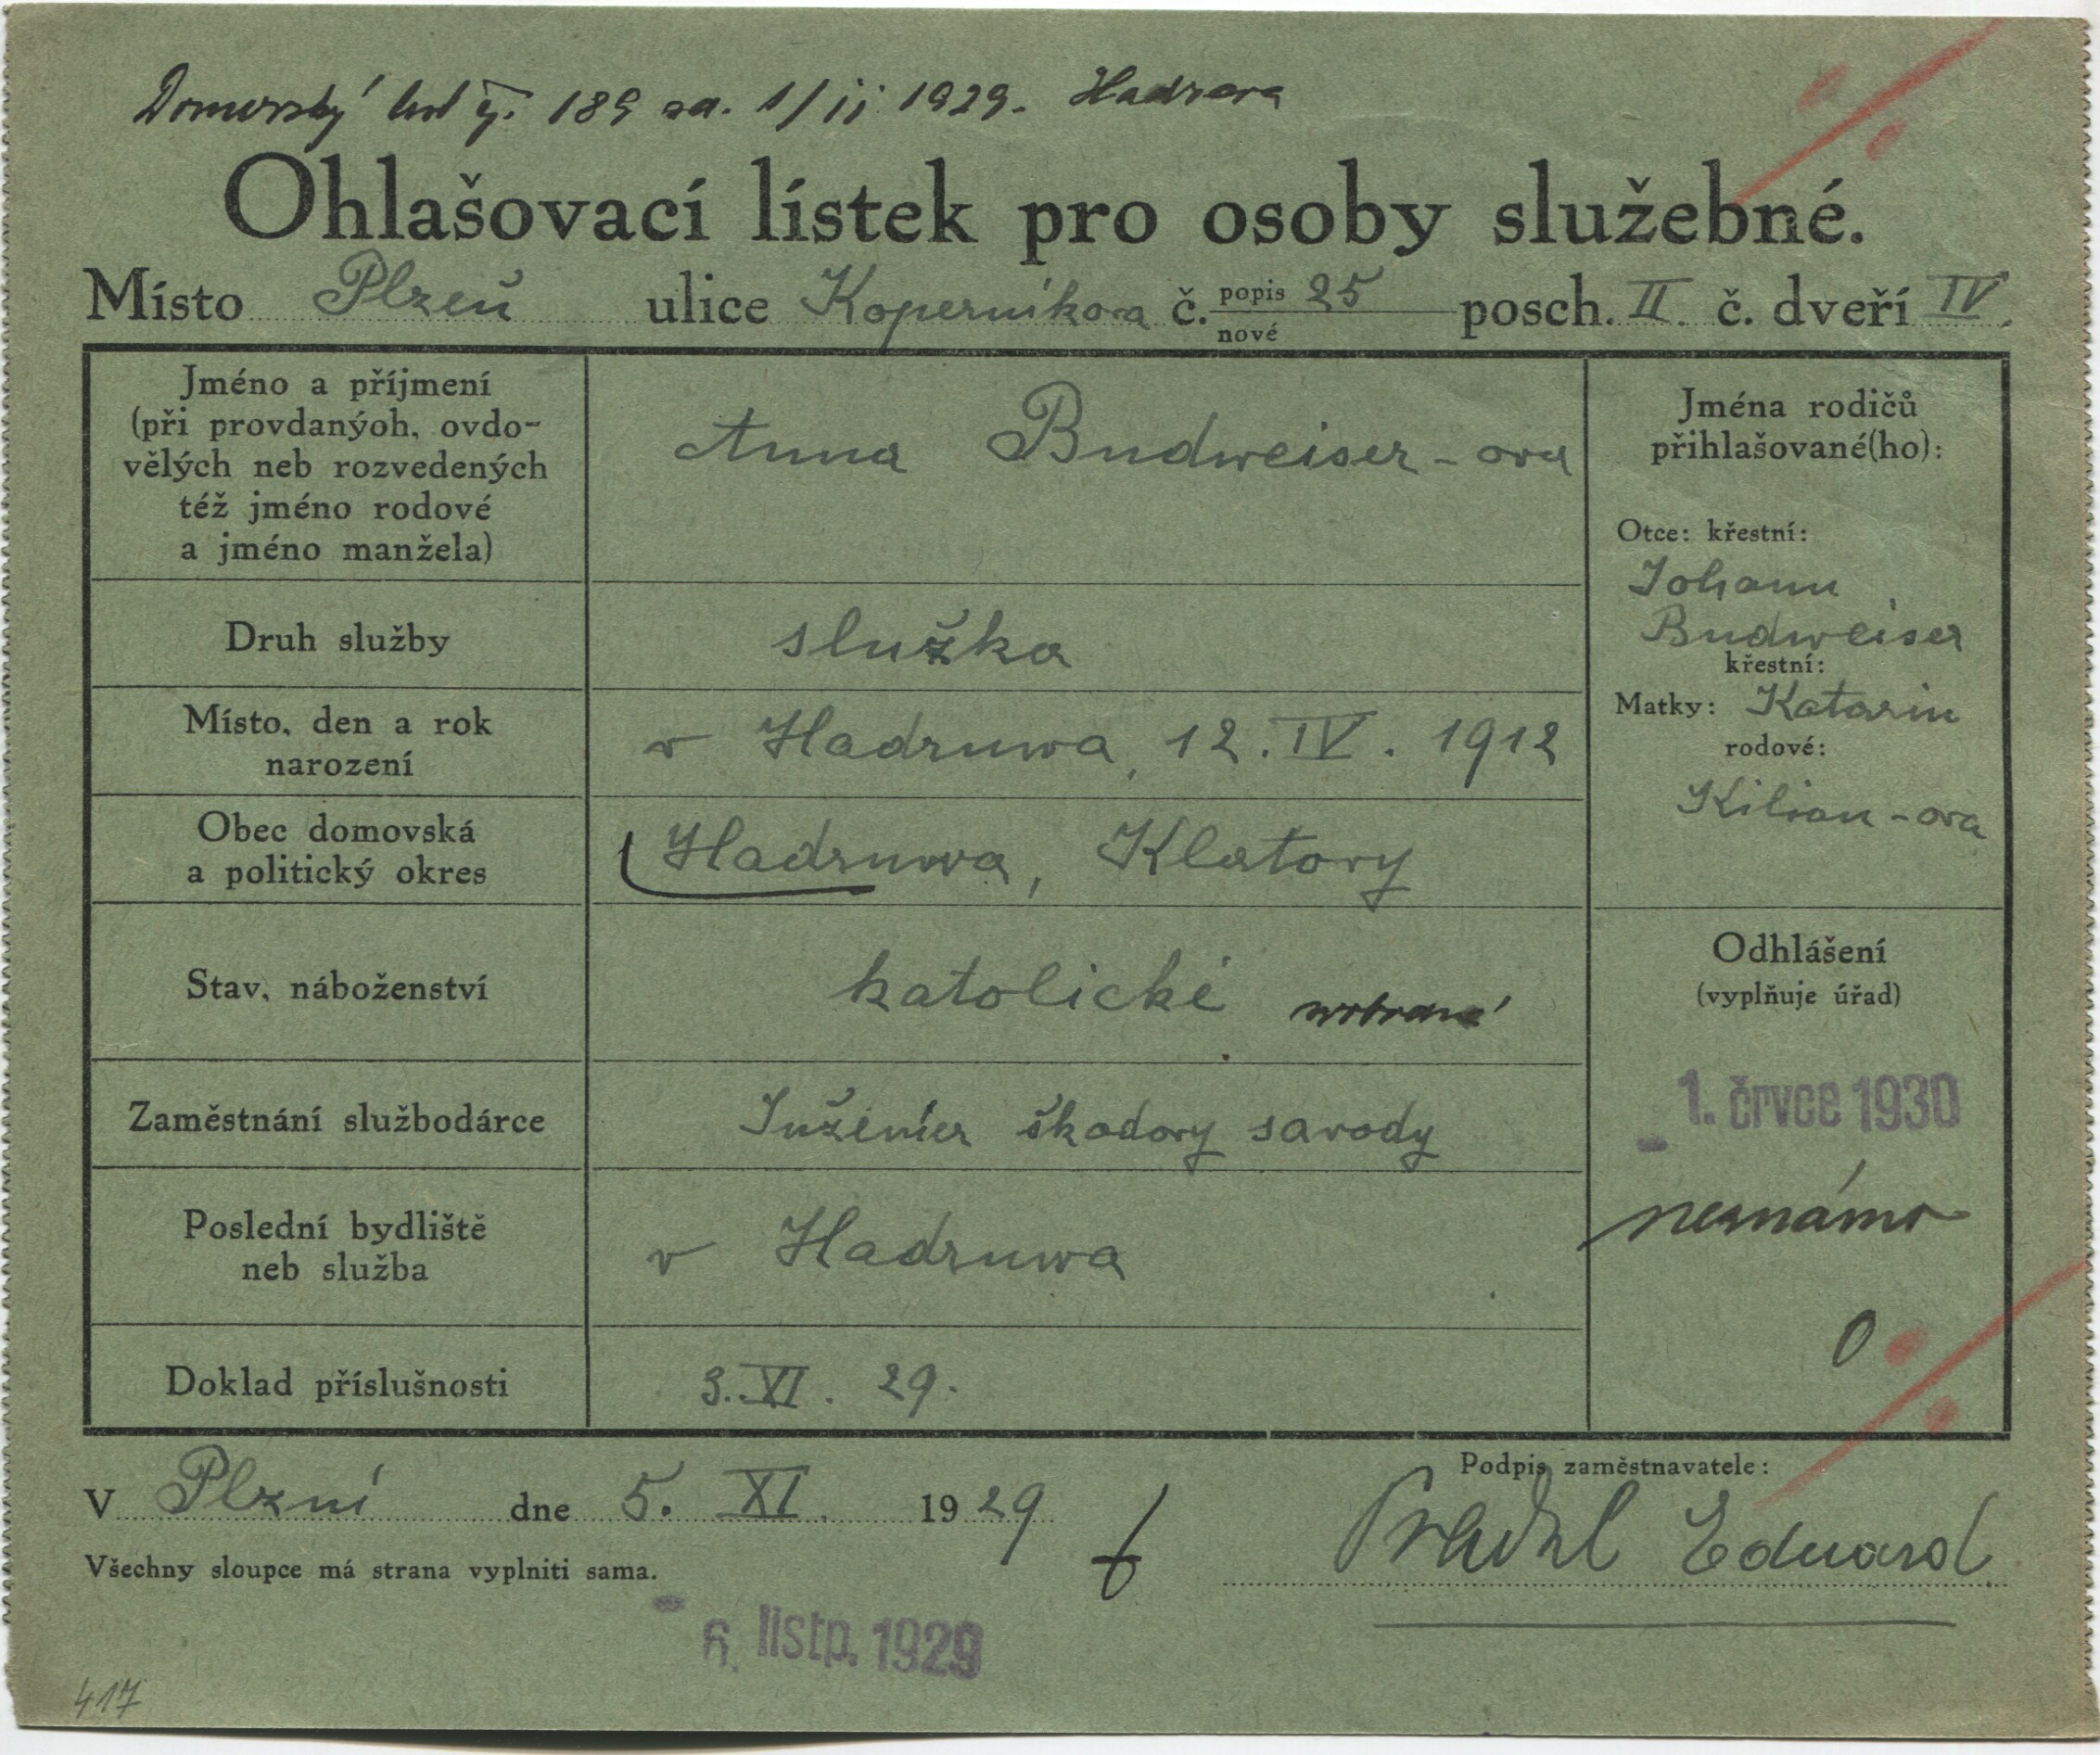 Domovský list č. 189 za. 1/ii 1929. Hadrava
Ohlašovací lístek pro osoby služebné.
Místo Plzeň ulice Koperníkova č. popis 25 posch. II. č. dveří IV.
nové
Jméno a příjmení
(při provdanýoh, ovdo-
vělých neb rozvedených
též jméno rodové
a jméno manžela)
Anna Budweiser-ova
Jména rodičů
přihlašované(ho):
Otce: křestní:
Johann
Budweiser
křestní:
Matky: Katarin
rodové:
Kilian-ova
Druh služby
služka
Místo, den a rok
narození
v Hadruwa, 12. IV. 1912
Obec domovská
a politický okres
Hadruwa, Klatovy
Stav, náboženství
katolické
Odhlášení
(vyplňuje úřad)
1. črvce 1930
neznámo
0
Zaměstnání službodárce
Inženier škodovy savody
Poslední bydliště
neb služba
v Hadruwa
Doklad příslušnosti
3. XI. 29.
V Plzni dne 5. XI. 1929
Podpis zaměstnavatele:
Eduard
Všechny sloupce má strana vyplniti sama.
6. listp. 1929
417